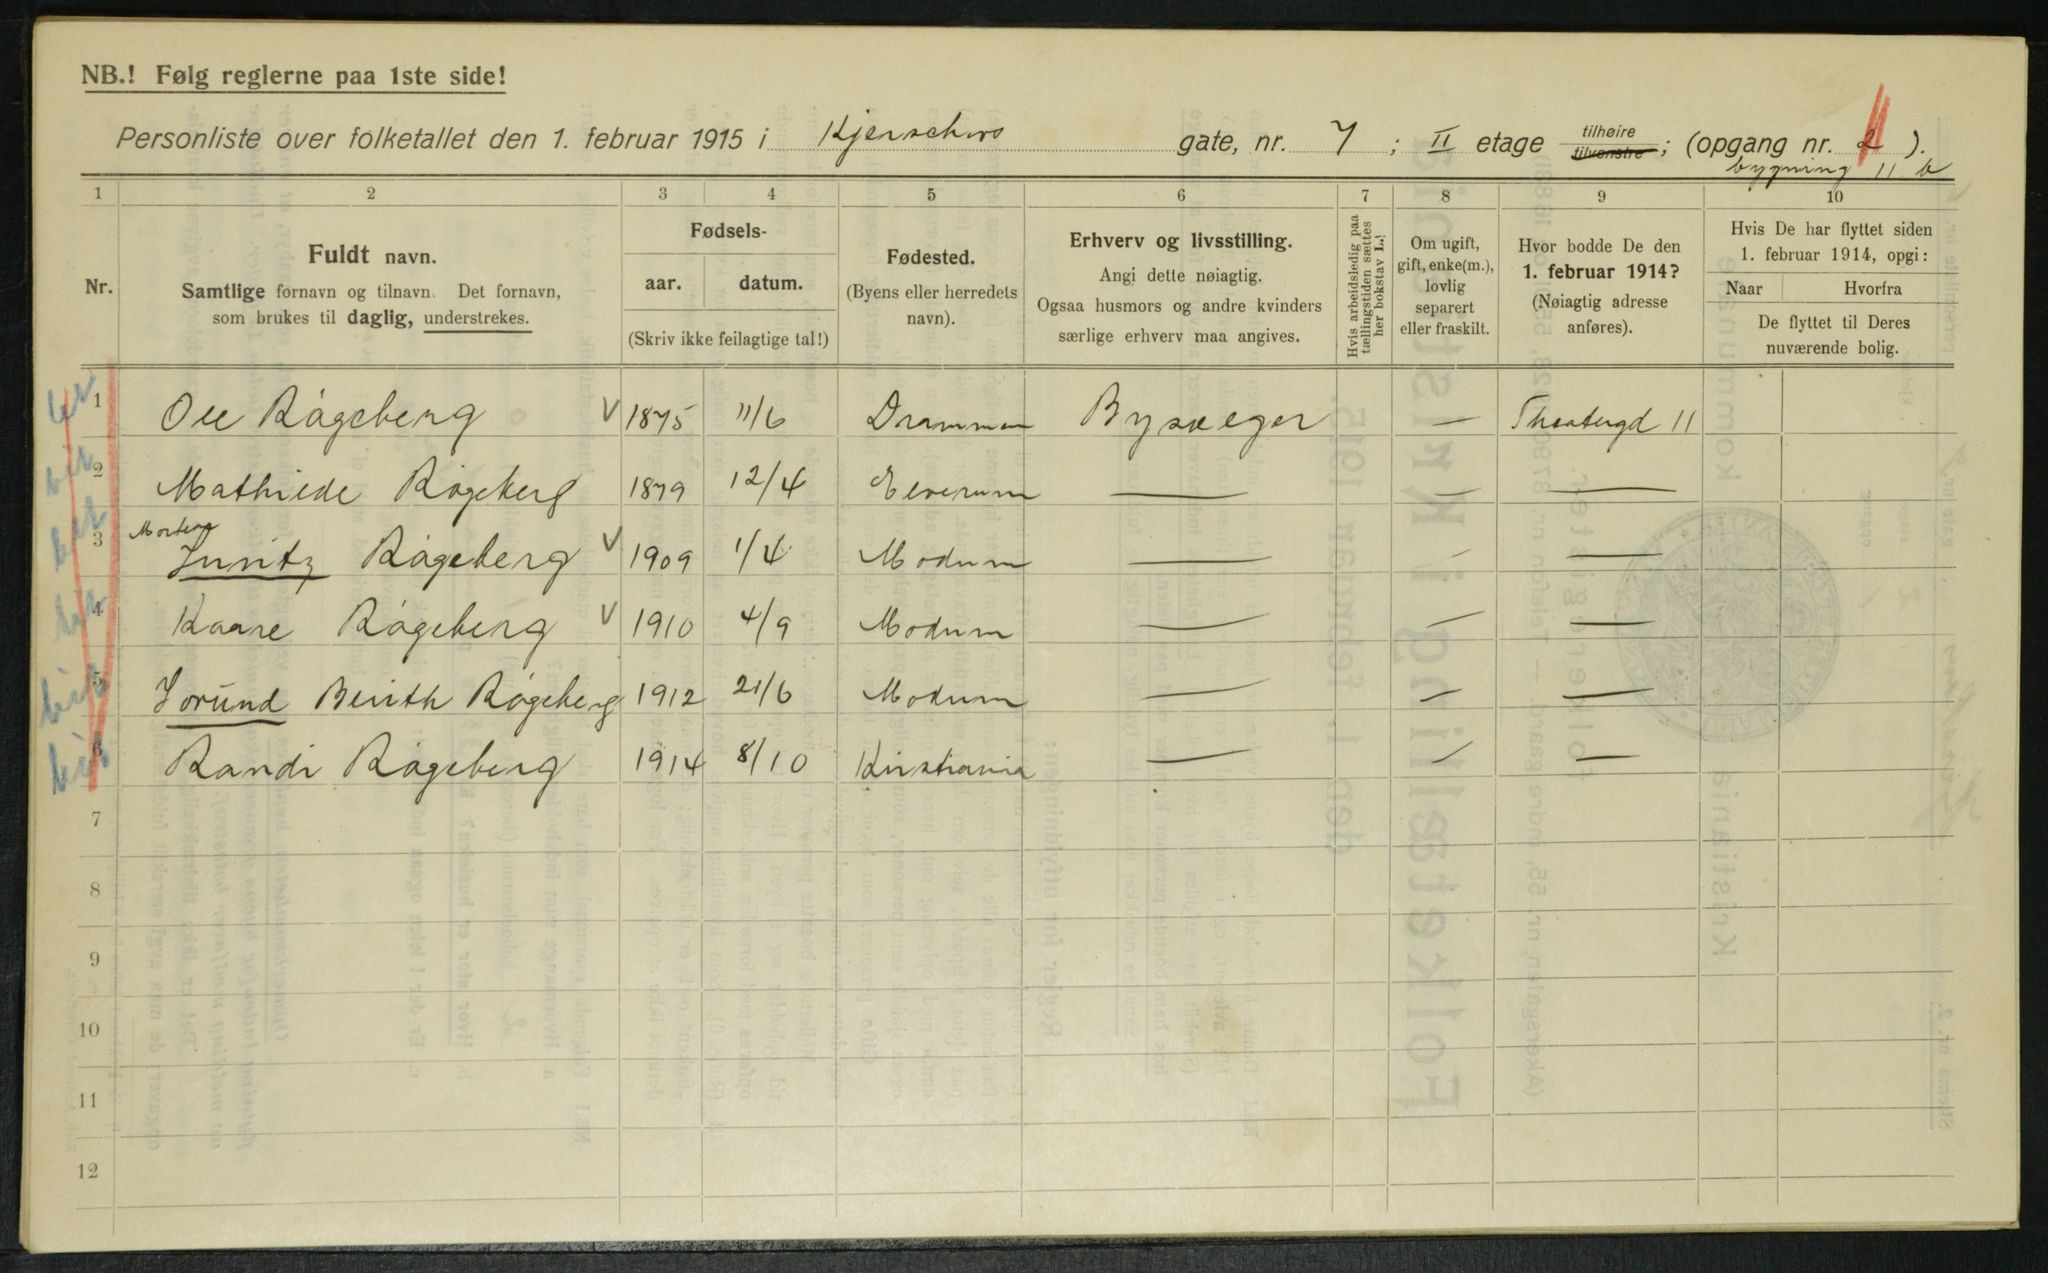 NB.! Følg reglerne paa 1ste side!
Personliste over folketallet den 1. februar 1915 i Kjerschows gate, nr. 7 ; II etage tilhøire tilvenstre ; (opgang nr. 2 ).
bygning II b
1 2 3 4 5 6 7 8 9 10
Nr.
Fuldt navn.
Samtlige fornavn og tilnavn. Det fornavn,
som brukes til daglig, understrekes.
Fødsels-
aar. datum.
(Skriv ikke feilagtige tal!)
Fødested.
(Byens eller herredets
navn).
Erhverv og livsstilling.
Angi dette nøiagtig.
Ogsaa husmors og andre kvinders
særlige erhverv maa angives.
Hvis arbeidsledig paa
tællingstiden sættes
her bokstav L.!
Om ugift,
gift, enke(m.),
lovlig
separert
eller fraskilt.
Hvor bodde De den
1. februar 1914?
(Nøiagtig adresse
anføres).
Hvis De har flyttet siden
1. februar 1914, opgi:
Naar Hvorfra
De flyttet til Deres
nuværende bolig.
1 Ole Rågeberg V 1875 11/6 Drammen Bysæger — Theatergd 11
2 Mathilde Rågeberg 1879 12/4 Elverum — — —
Morten
3 Juritz Rågeberg V 1909 1/4 Modum — — —
4 Kaare Rågeberg V 1910 4/9 Modum — — —
5 Jorund Berith Rågeberg 1912 21/6 Modum — — —
6 Randi Rågeberg 1914 8/10 Kristiania — — —
7
8
9
10
11
12